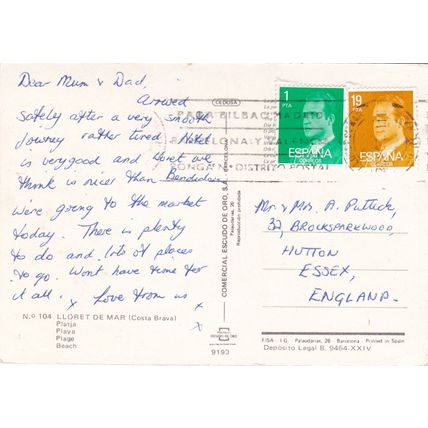 Dear Mum & Dad,
Arrived
safely after a very smooth
Journey rather tired Hotel
is very good and Lloret we
think is nicer than Benidorm
We're going to the market
today. There is plenty
to do and lots of places
to go. Wont have time for
it all. x Love from us x
x
N.º 104 LLORET DE MAR (Costa Brava)
Platja
Playa
Plage
Beach
CEDOSA
COMERCIAL ESCUDO DE ORO, S.A.
Palaudarias, 26
Reproducción prohibida
ESCUDO DE ORO
9193
1
PTA
ESPAÑA
CORREOS
19
PTA
ESPAÑA
CORREOS
PARA BILBAO, MADRID
BARCELONA Y
PONGA Nº DISTRITO POSTAL
Mr. & Mrs. A. Puttick,
32, BROCKSPARKWOOD,
HUTTON
ESSEX,
ENGLAND.
FISA - I.G. Palaudarias, 26 - Barcelona - Printed in Spain
Depósito Legal B. 9464-XXIV